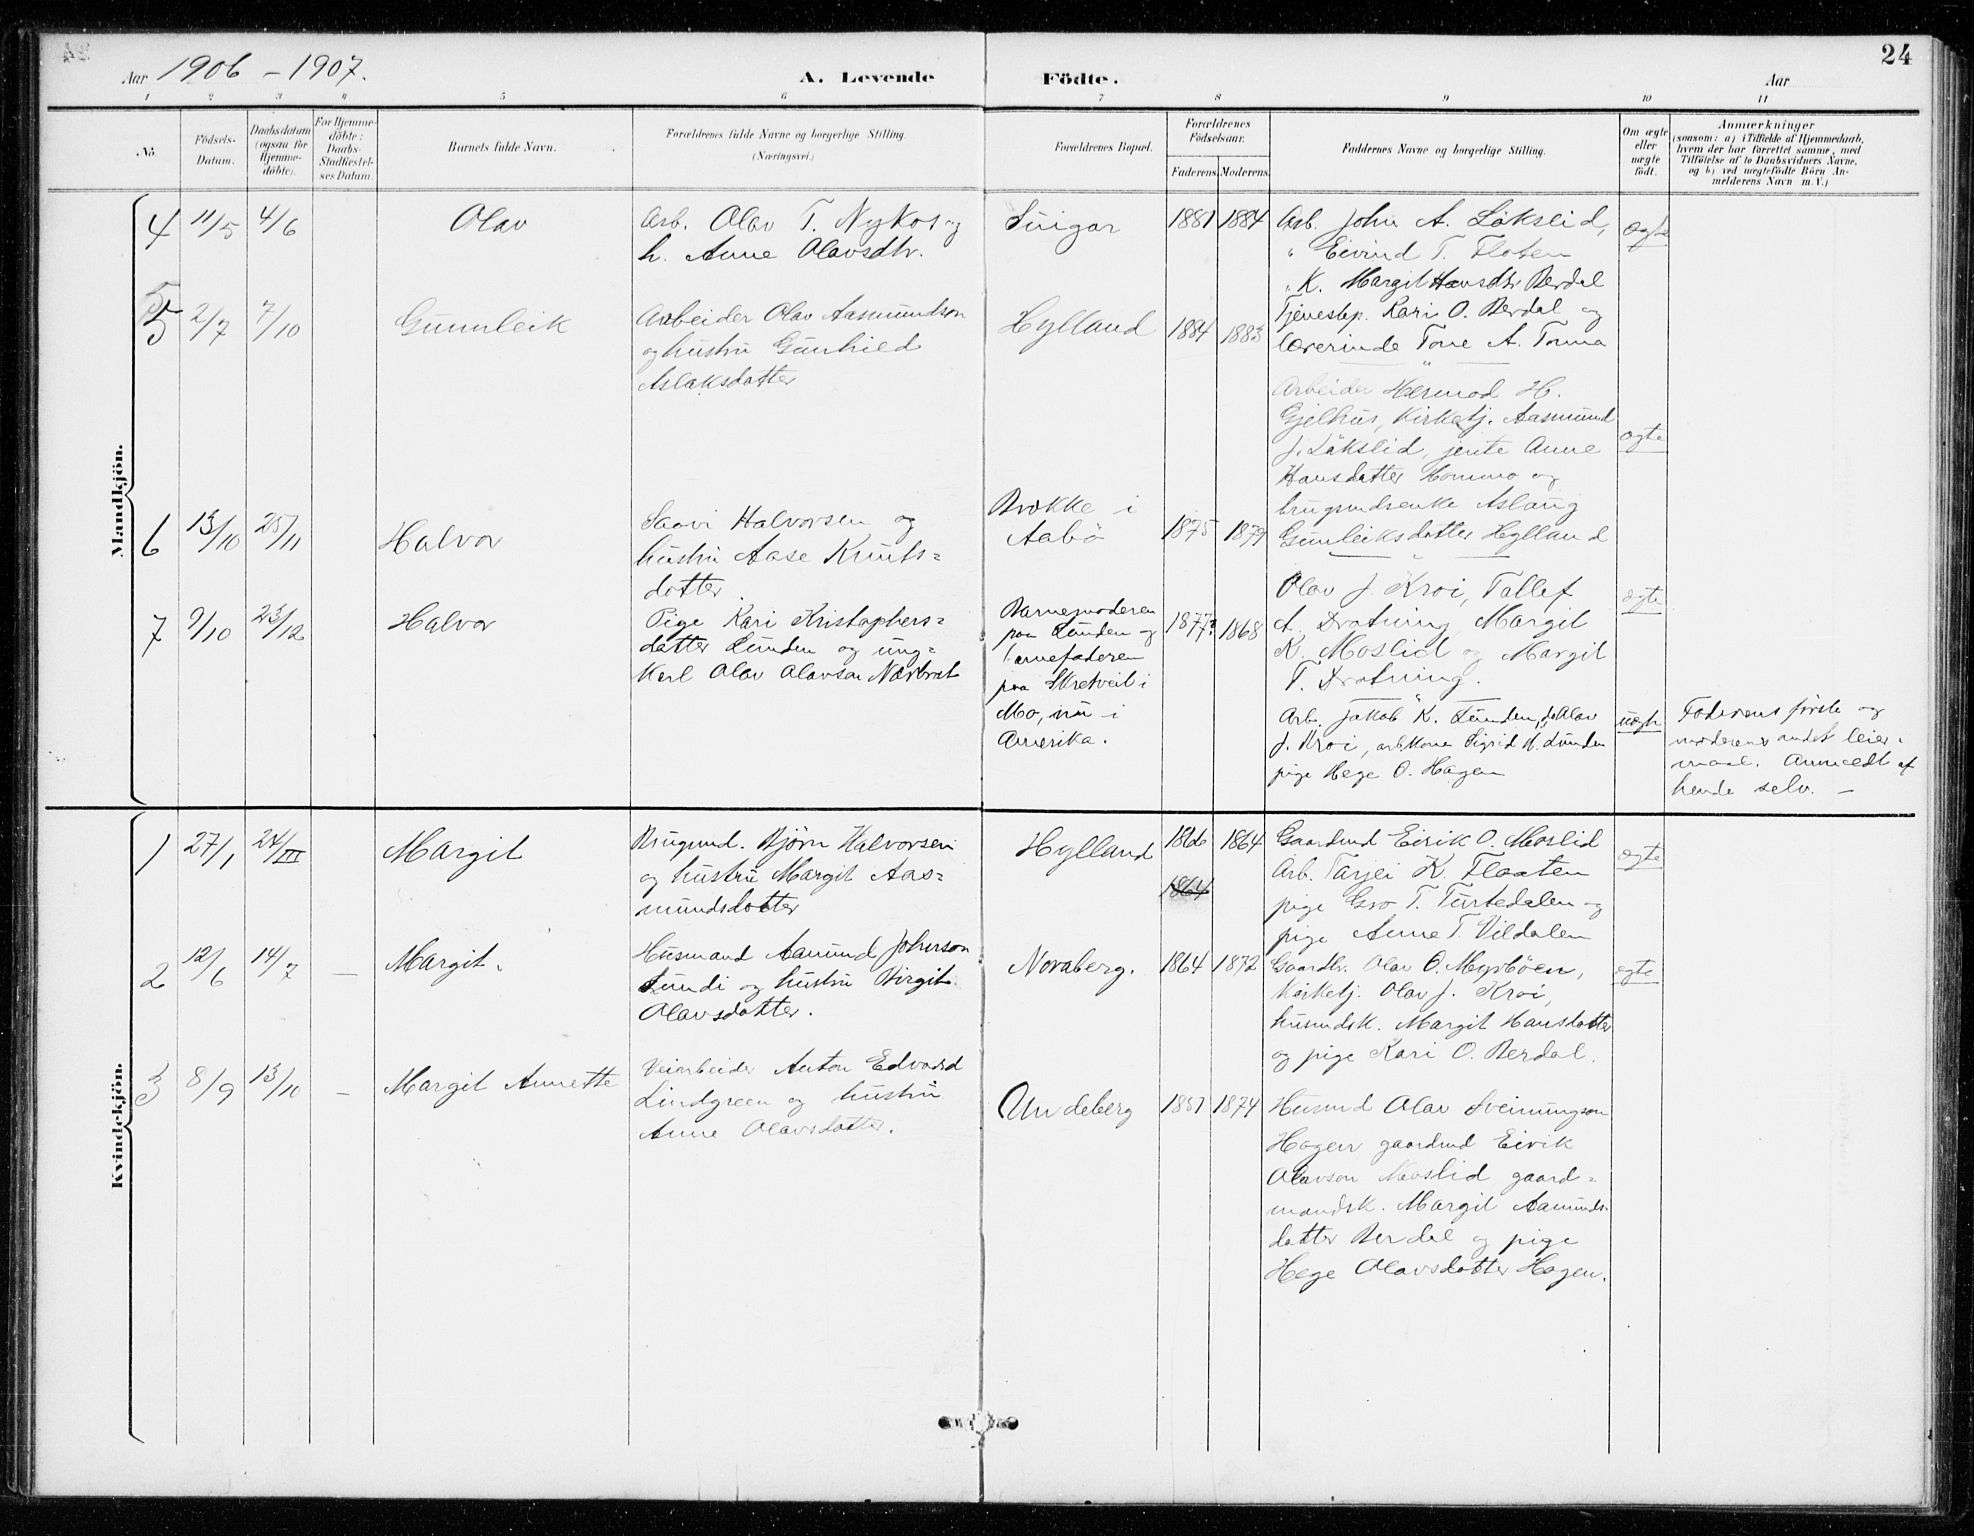 24
Aar 1906 - 1907.
A. Levende Födte.
Aar
1 2 3 4 5 6 7 8 9 10 11
No.
Födsels-
Datum.
Daabsdatum
(ogsaa for
Hjemme-
döbte).
For Hjemme-
döbte:
Daabs-
Stadfæstel-
ses Datum.
Barnets fulde Navn.
Forældrenes fulde Navne og borgerlige Stilling.
(Næringsvei.)
Forældrenes Bopæl.
Forældrenes
Födselsaar.
Faderens. Moderens.
Faddernes Navne og borgerlige Stilling.
Om ægte
eller
uægte
födt.
Anmærkninger
(saasom: a) i Tilfælde af Hjemmedaab,
hvem der har forrettet samme, med
Tilföielse af to Daabsvidners Navne,
og b) ved uægtefödte Börn An-
melderens Navn m. V.)
Mandkjön.
4 11/5 4/6 Olav
Arb. Olav T. Nykos og
h. Anne Olavsdtr.
1881 1884
Arb. John A. Lökslid,
" Eivind T. Floten
" K. Margit Hansdtr Berdal
Tjenestep. Kari O. Berdal og
lærerinde Tone A. Tomma
ægte
5 2/7 7/10 Gunnleik
Arbeider Olav Aasmundson
og hustru Gunhild
Aslaksdatter
Hylland 1884 1883
Arbeider Hermod H.
Gjelhus, Kirketj. Aasmund
J. Lökslid, jente Anne
Hansdatter Hommo og
brugmdsenke Aslaug
Gunleiksdatter Hylland
ægte
6 13/10 25/11 Halvor
Saavi Halvorsen og
hustru Aase Knuts=
datter
Brække i
Aabö
1875 1879
Olav J. Kroi, Tallef
A. Drotning, Margit
K. Moslid og Margit
T. Drotning.
ægte
7 9/10 23/12 Halvor
Pige Kari Kristophers=
datter Lunden og ung=
Karl Olav Olavson Nærbræt
Barnemoderen
paa Lunden og
barnefaderen
paa Skretveit i
Mo, nu i
Amerika.
1877? 1868
Arb. Jakob K. Lunden, do Olav
J. Kroi, arb.kone Sigrid K. Lunden
pige Hege O. Hagen
uægte
Faderens förste og
moderens andet leier-
maal. Anmeldt af
hende selv. -
Kvindekjön.
1 27/1 24/III Margit
Brugmd. Björn Halvorsen
og hustru Margit Aas=
mundsdatter
Hylland 1866 1864
1864
Gaardmd Eirik O. Moslid
Arb. Tarjei K. Flaaten
pige Gro T. Turtedalen og
pige Anne T. Vildalen
ægte
2 12/6 14/7 - Margit.
Husmand Aamund Johnson
Lundi og hustru Birgit
Olavsdatter.
Noraberg. 1864 1872
Gaardbr. Olav O. Myrböen,
Kirketj. Olav J. Kroi,
husmdsk. Margit Hansdatter
og pige Kari O. Berdal.
ægte
3 8/9 13/10 - Margit Annette
Veiarbeider Anton Edvard
Lindgreen og hustru
Anne Olavsdatter.
Undeberg 1874
Husmd Olav Sveinungson
Hagen gaardmd Eivik
Olavson Moslid gaard=
mandsk. Margit Aamunds-
datter Berdal og pige
Hege Olavsdatter Hagen.